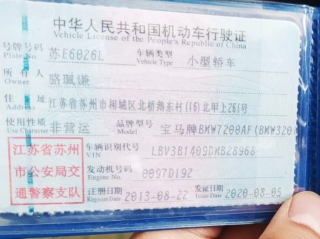 中华人民共和国机动车行驶证
Vehicle License of the People's Republic of China
号牌号码 苏E6026L 车辆类型 小型轿车
Plate No. Vehicle Type
所有人 骆珮谦
Owner
住址 江苏省苏州市相城区北桥
使用性质 非营运 品牌型号 宝马牌BMW7200AF(BMW320
Use Character
江苏省苏州 车辆识别代号
VIN
市公安局交 发动机号码 0097D192
Engine No.
通警察支队 注册日期 2013-08-22 发证日期 2020-08-05
Register Date Issue Date